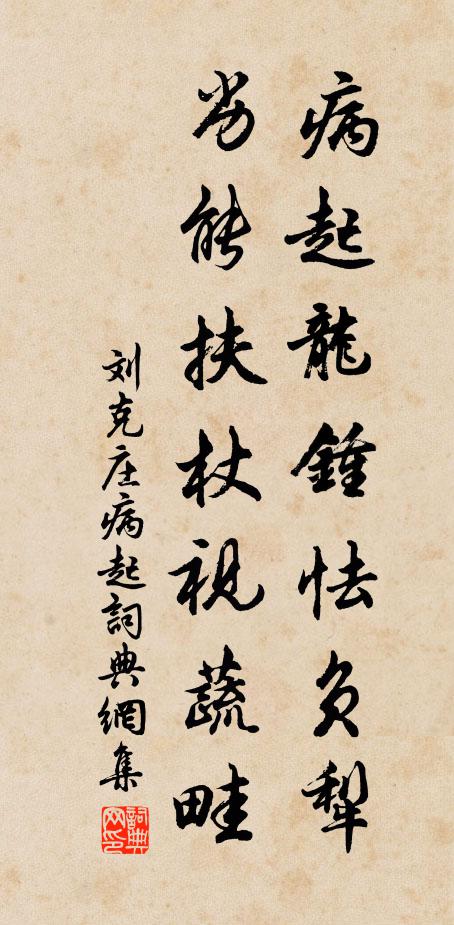 病起龍鍾怯負犂
尚能扶杖視蔬畦
刘克庄病起詞典網集
詞典网印